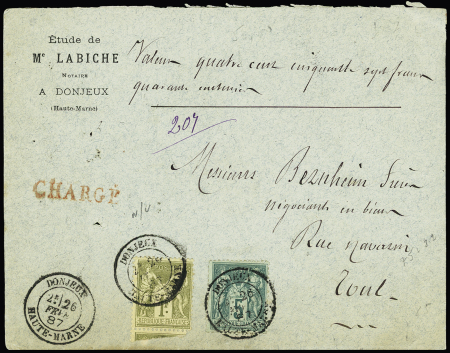 Étude de
Mᵉ LABICHE
NOTAIRE
A DONJEUX
(Haute-Marne)
Valeur quatre cent cinquante sept francs
quarante centimes
207
CHARGÉ
Messieurs Bernheim
négociants en biens
Rue
Toul
DONJEUX
HAUTE-MARNE
DONJEUX
26
87
HAUTE-MARNE
REPUBLIQUE FRANÇAISE